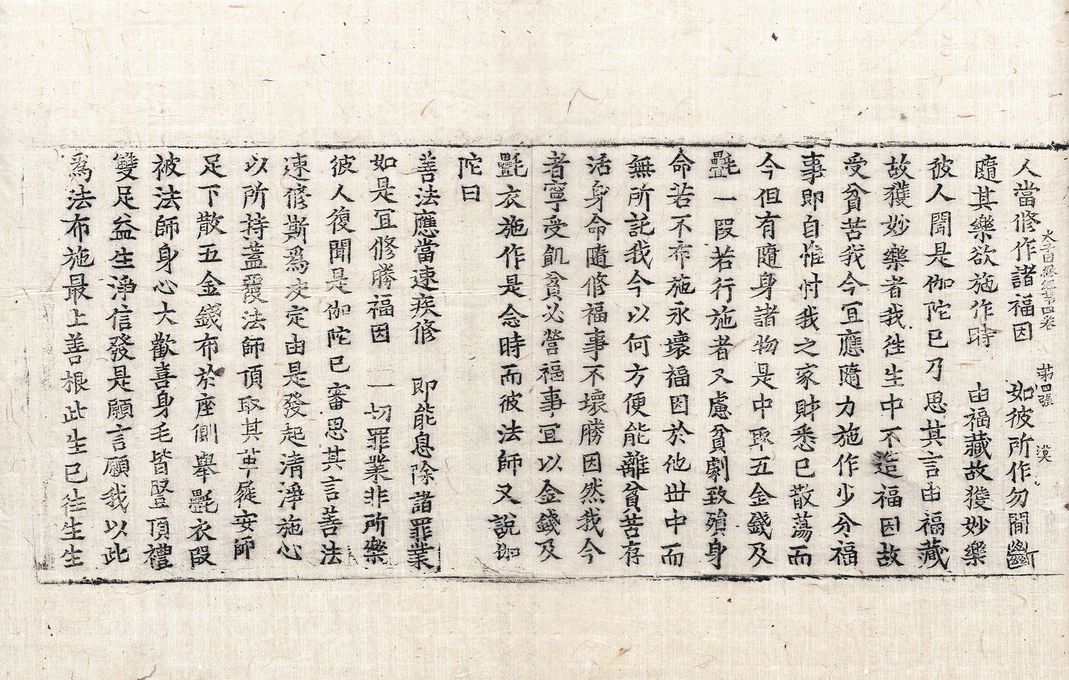 人當修作諸福因　如彼所作勿間斷
太子因緣經第四卷　第四張　漢
隨其樂欲施作時　由福藏故獲妙樂
彼人聞是伽陀已乃思其言由福藏
故獲妙樂者我往生中不造福因故
受貧苦我今宜應隨力施作少分福
事即自惟忖我之家財悉已散蕩而
今但有隨身諸物是中取五金錢及
氎一段若行施者又慮貧劇致殞身
命若不布施永壞福因於他世中而
無所託我今以何方便能離貧苦存
活身命隨修福事不壞勝因然我今
者寧受飢貧必營福事宜以金錢及
氎衣施作是念時而彼法師又說伽
陀曰
善法應當速疾修　即能息除諸罪業
如是宜修勝福因　一切罪業非所樂
彼人復聞是伽陀已審思其言善法
速修斯爲決定由是發起清淨施心
以所持蓋覆法師頂取其革屣安師
足下散五金錢布於座側舉氎衣段
被法師身心大歡喜身毛皆豎頂禮
雙足益生淨信發是願言願我以此
爲法布施最上善根此生已往生生